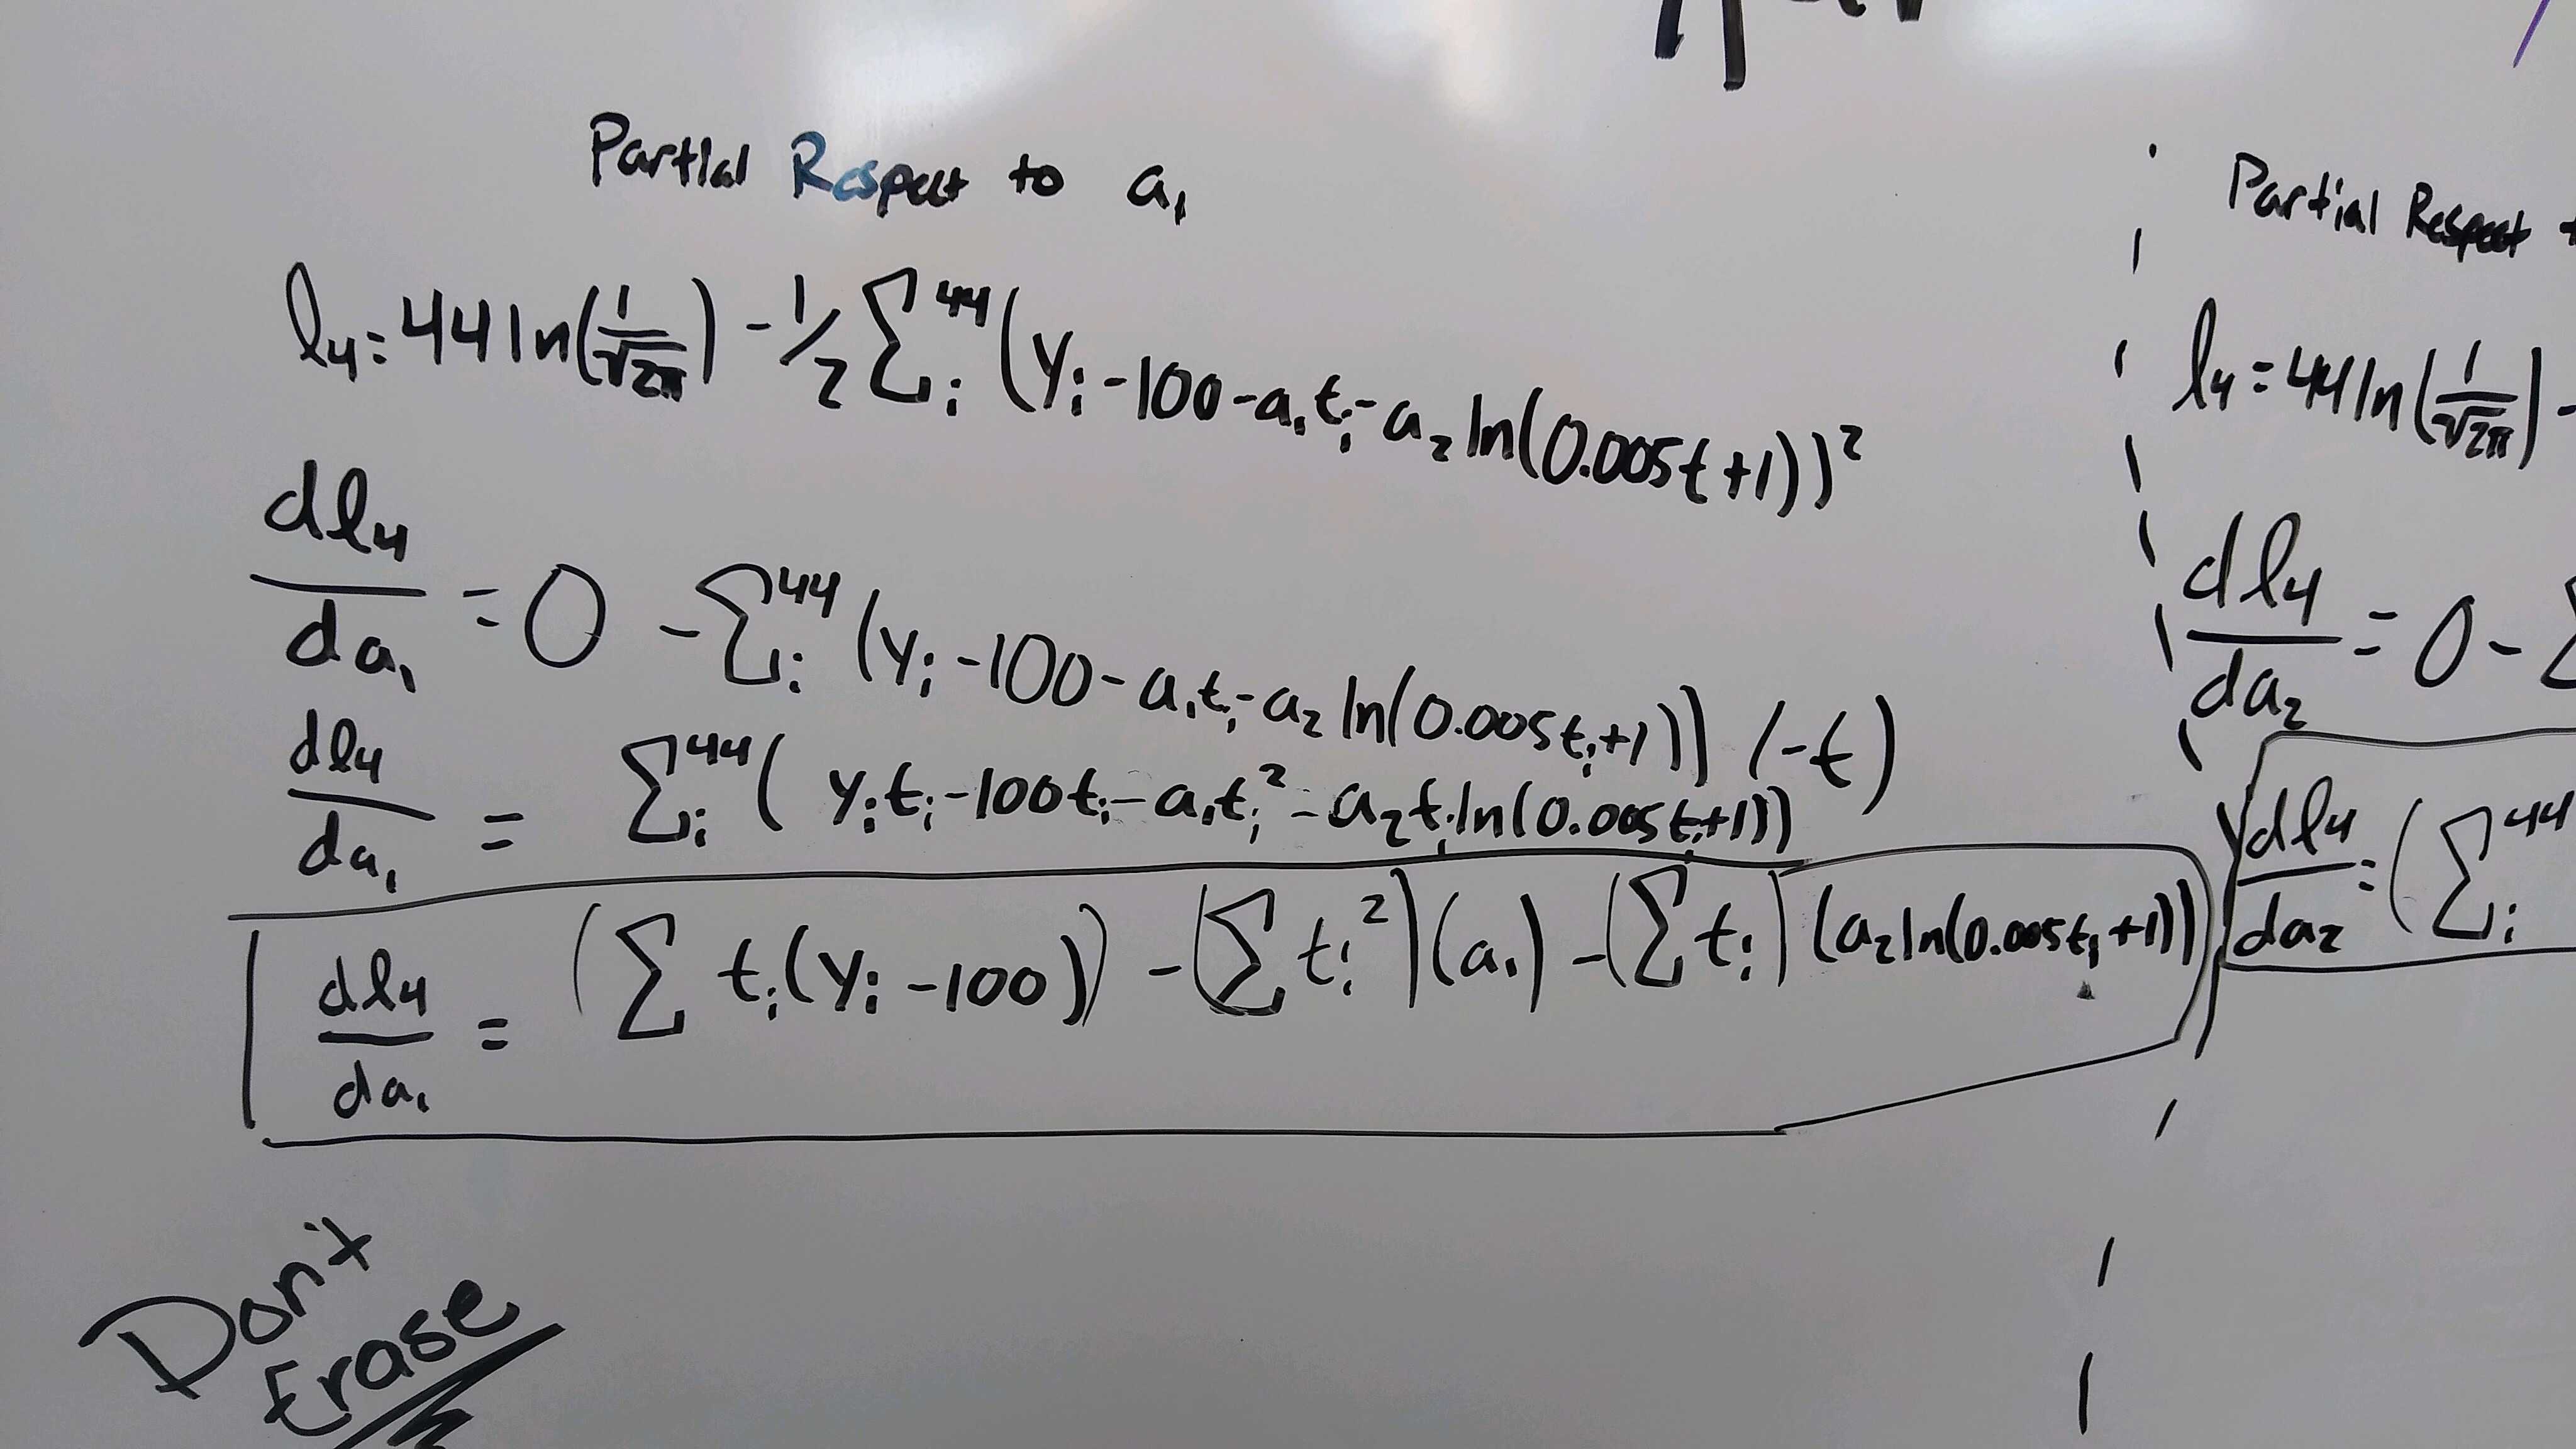 Partial Respect to a₁
l₄ = 44 ln(1/√2π) - 1/2 Σᵢ⁴⁴ (yᵢ - 100 - a₁tᵢ - a₂ ln(0.005t + 1))²
dl₄/da₁ = 0 - Σᵢ⁴⁴ (yᵢ - 100 - a₁tᵢ - a₂ ln(0.005tᵢ + 1)) (-t)
dl₄/da₁ = Σᵢ⁴⁴ ( yᵢtᵢ - 100tᵢ - a₁tᵢ² - a₂tᵢ ln(0.005tᵢ + 1))
dl₄/da₁ = (Σ tᵢ(yᵢ - 100)) - (Σ tᵢ²)(a₁) - (Σ tᵢ) (a₂ ln(0.005tᵢ + 1))
Don't
Erase
Partial Respect
l₄ = 44 ln(1/√2π) -
dl₄/da₂ = 0 -
dl₄/da₂ = (Σᵢ⁴⁴